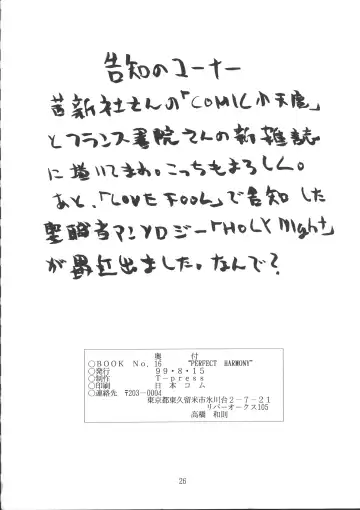 告知のコーナー
茜新社さんの「COMIC小天庭」
とフランス書院さんの新雑誌
に描いてまわ。こっちもよろしく。
あと、「LOVE FOOL」で告知した
聖職者アンソロジー「HOLY Night」
が最近出ました。なんで?
奥 付
○BOOK No.16 "PERFECT HARMONY"
○発行 99・8・15
○制作 T-press
○印刷 日本コム
○連絡先 〒203-0004
東京都東久留米市氷川台2-7-21
リバーオークス105
高橋 和則
26